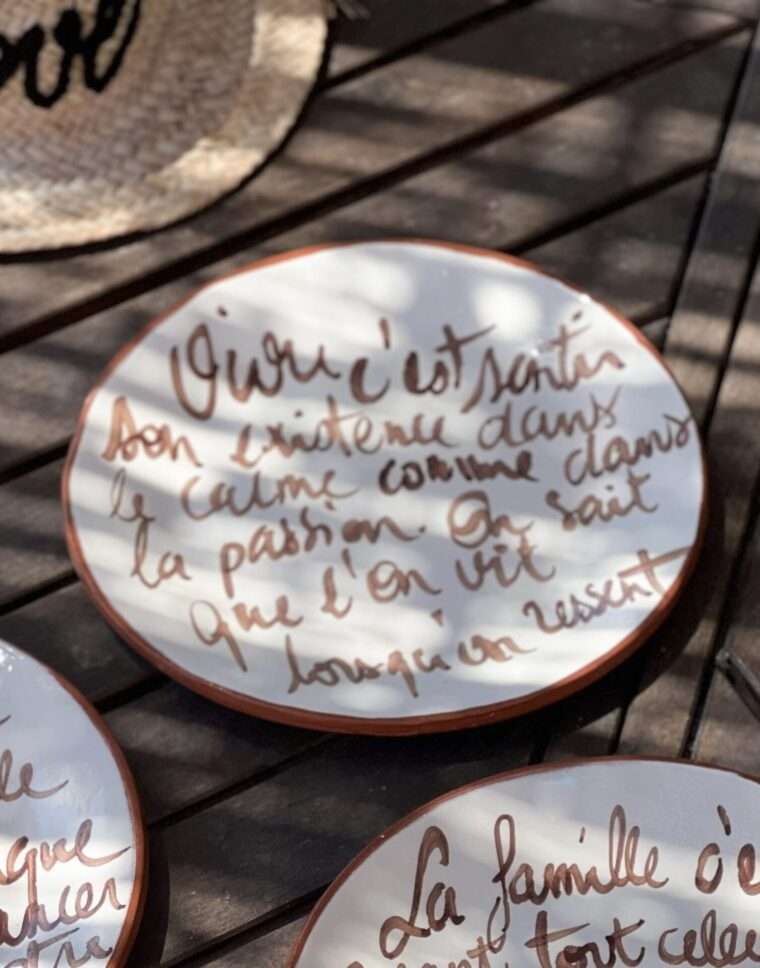 ove
Vivre c'est sentir
son existence dans
le calme comme dans
la passion. On sait
que l'on vit
lorsqu'on ressent
le
que
ancer
tre
La famille c'e
ant tout celle